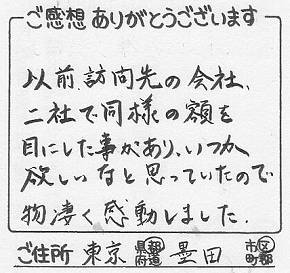 ご感想ありがとうございます
以前、訪問先の会社、
二社で同様の額を
目にした事があり、いつか
欲しいなと思っていたので
物凄く感動しました。
ご住所 東京 都道府県 墨田 市区町郡